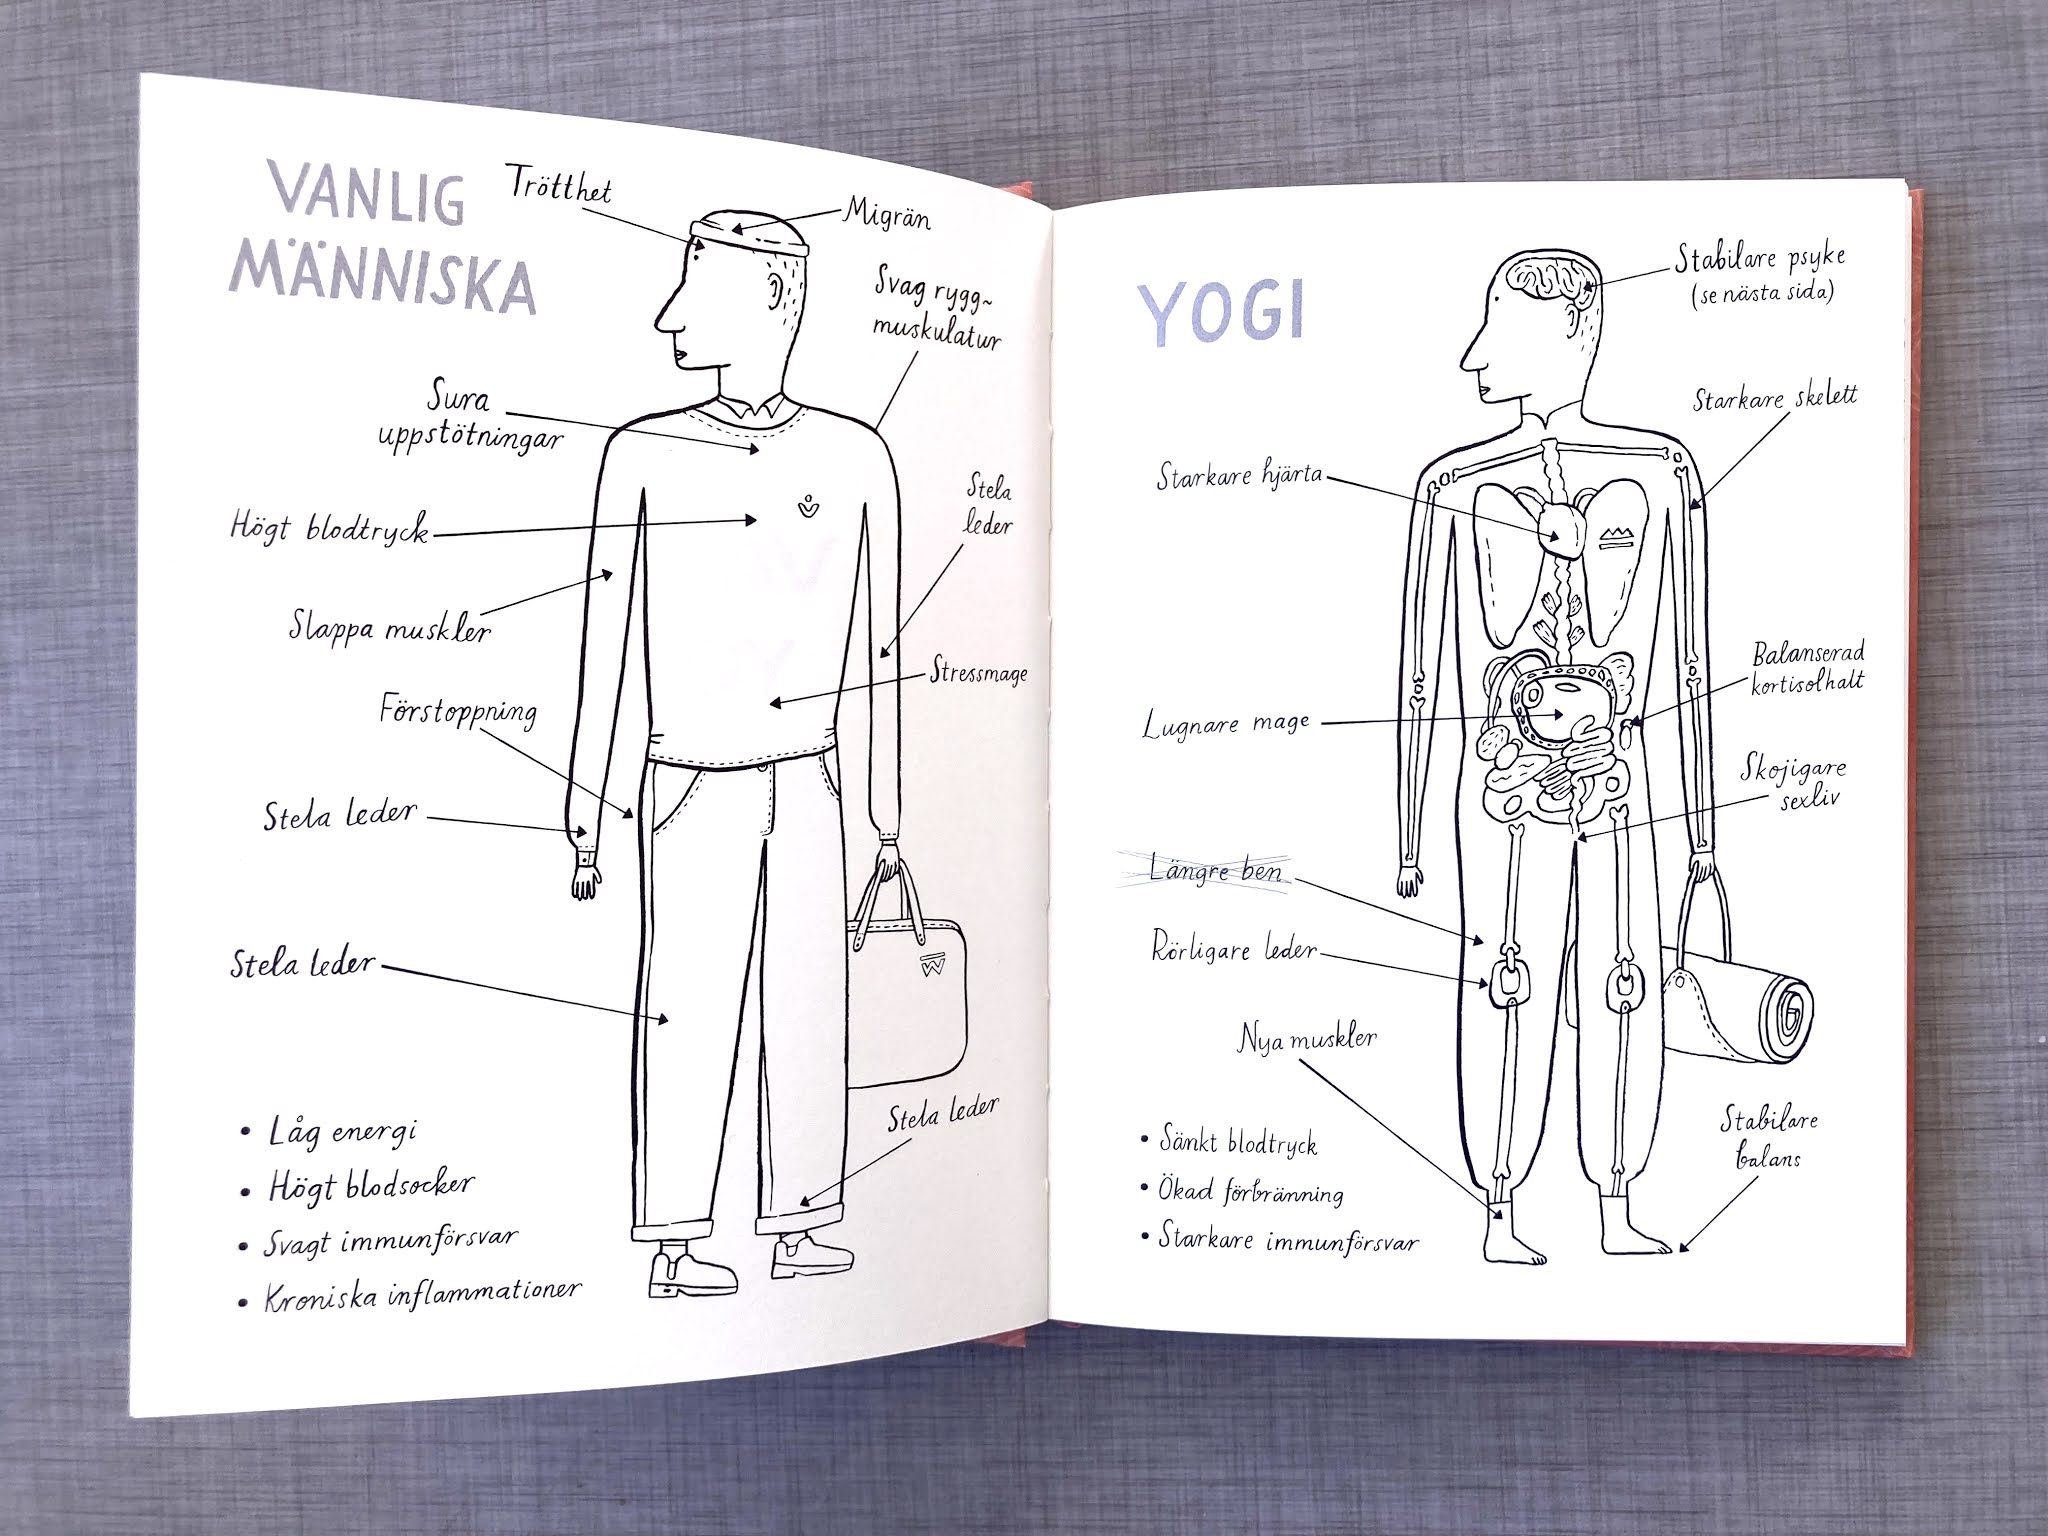 VANLIG
MÄNNISKA
Trötthet
Migrän
Svag rygg~
muskulatur
Sura
uppstötningar
Stela
leder
Högt blodtryck
Slappa muskler
Stressmage
Förstoppning
Stela leder
Stela leder
Stela leder
• Låg energi
• Högt blodsocker
• Svagt immunförsvar
• Kroniska inflammationer
YOGI
Stabilare psyke
(se nästa sida)
Starkare skelett
Starkare hjärta
Balanserad
kortisolhalt
Lugnare mage
Skojigare
sexliv
Längre ben
Rörligare leder
Nya muskler
Stabilare
balans
• Sänkt blodtryck
• Ökad förbränning
• Starkare immunförsvar